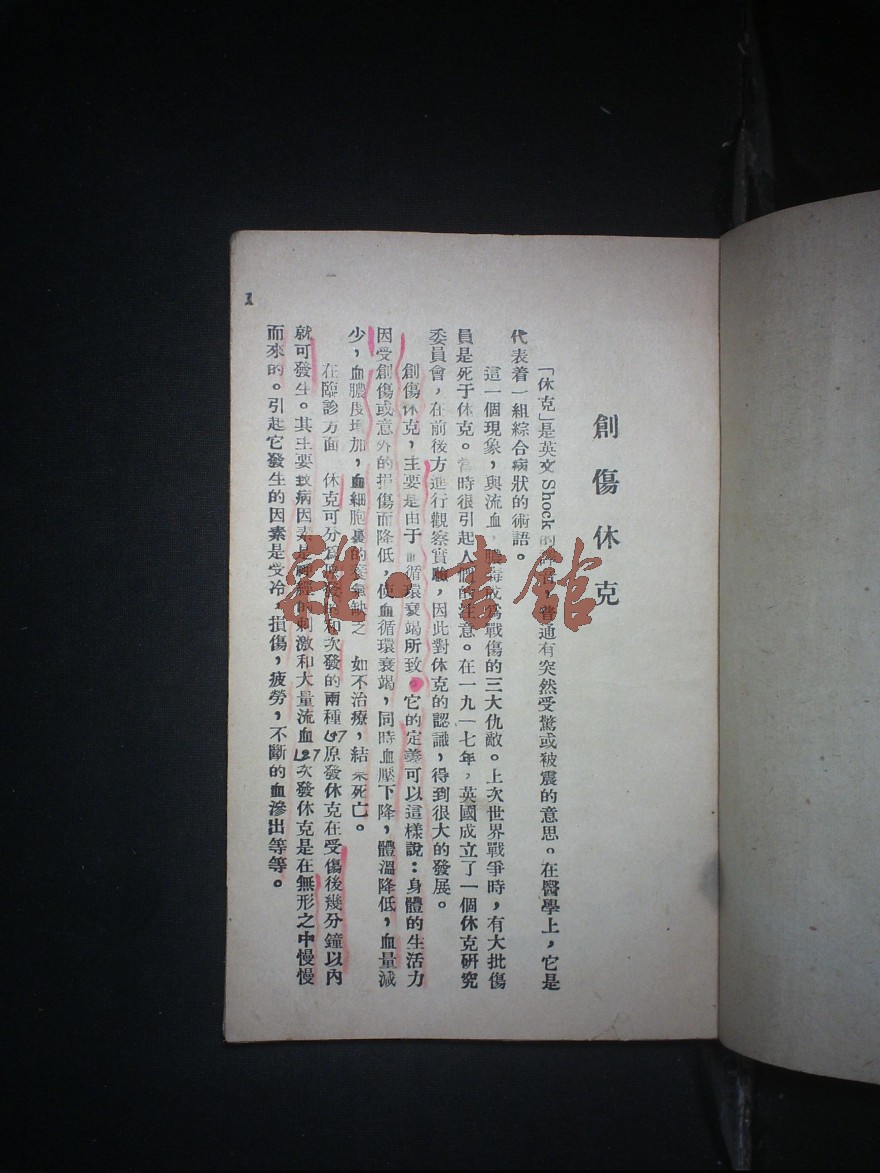 創傷休克
「休克」是英文 Shock 的譯音，普通有突然受驚或被震的意思。在醫學上，它是
代表着一組綜合病狀的術語。
這一個現象，與流血，膿毒成爲戰傷的三大仇敵。上次世界戰爭時，有大批傷
員是死于休克。當時很引起人們的注意。在一九一七年，英國成立了一個休克硏究
委員會，在前後方進行觀察實驗，因此對休克的認識，得到很大的發展。
創傷休克，主要是由于血循環衰竭所致。它的定義可以這樣說：身體的生活力
因受創傷或意外的損傷而降低，使血循環衰竭，同時血壓下降，體溫降低，血量減
少，血膿度增加，血細胞裏的養氣缺乏 如不治療，結果死亡。
在臨診方面 休克可分爲原發的和次發的兩種 原發休克在受傷後幾分鐘以內
就可發生。其主要致病因素是神經的刺激和大量流血 次發休克是在無形之中慢慢
而來的。引起它發生的因素是受冷，損傷，疲勞，不斷的血滲出等等。
1
雜·書館